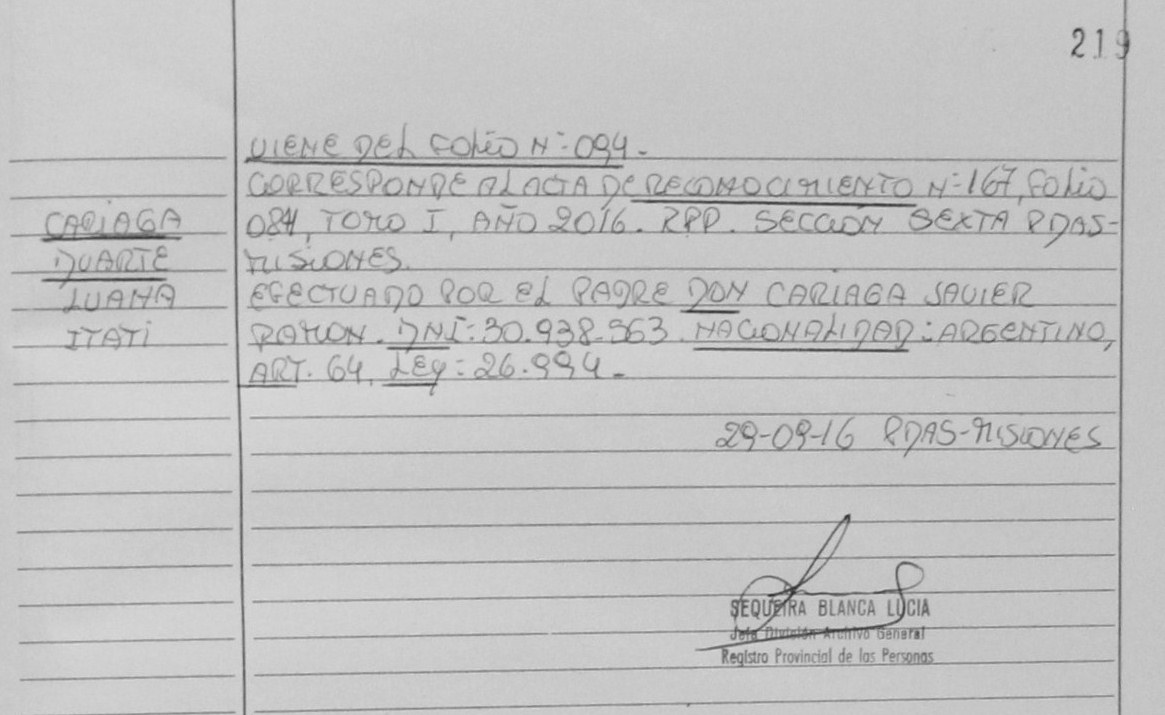 219
VIENE DEL FOLIO N-: 094-
CORRESPONDE AL ACTA DE RECONOCIMIENTO N-: 167, FOLIO
CARIAGA 084, TOMO I, AÑO 2016. RPP. SECCION SEXTA PDAS-
DUARTE MISIONES.
LUANA EFECTUADO POR EL PADRE DON CARIAGA JAVIER
ITATI RAMON. DNI: 30.938.563. NACIONALIDAD: ARGENTINO,
ART. 64, LEY: 26.994-
29-09-16 PDAS-MISIONES
SEQUEIRA BLANCA LUCIA
Jefa División Archivo General
Registro Provincial de las Personas